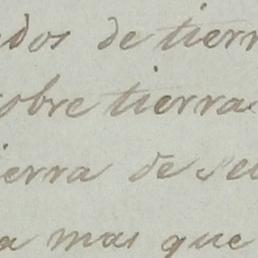 dos de tierr
sobre tierras
ierra de se
a mas que